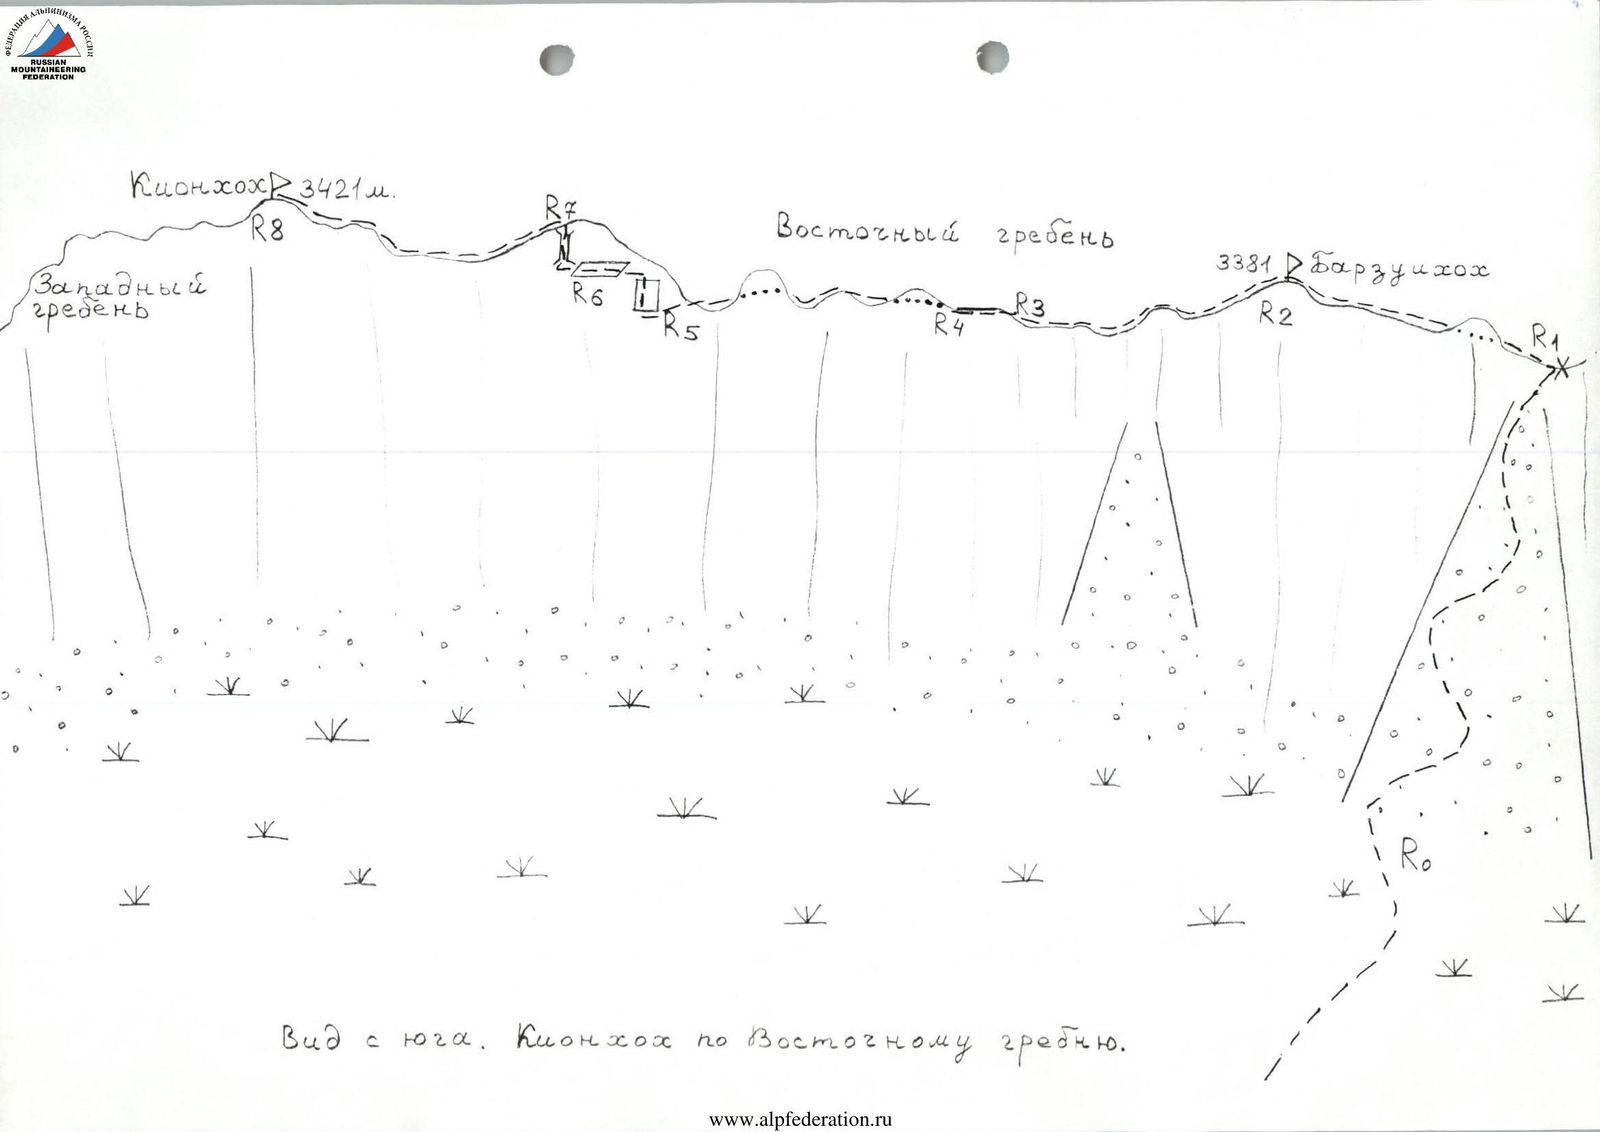 ФЕДЕРАЦИЯ АЛЬПИНИЗМА РОССИИ
RUSSIAN
MOUNTAINEERING
FEDERATION
Кионхох 3421м.
R8
R7
Восточный гребень
3381 Барзуихох
Западный
гребень
R6
R5
R4
R3
R2
R1
R0
Вид с юга. Кионхох по Восточному гребню.
www.alpfederation.ru